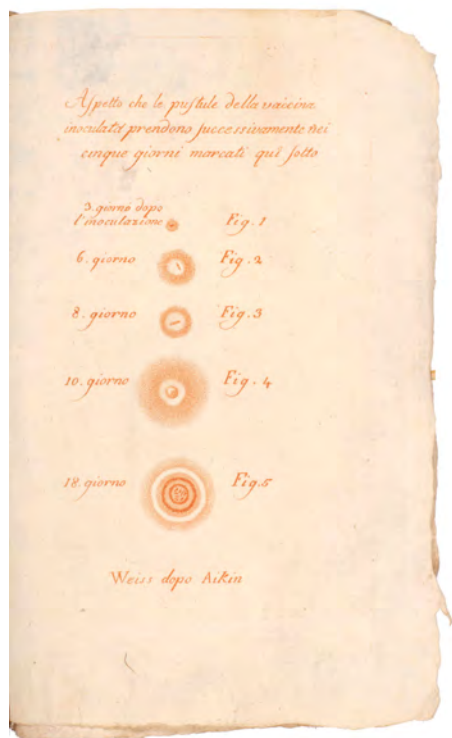 Aſpetto che le puſtule della vaicina
inoculata prendono ſucceſsivamente nei
cinque giorni marcati quì ſotto
3. giorno dopo
l'inoculazione Fig. 1
6. giorno Fig. 2
8. giorno Fig. 3
10. giorno Fig. 4
18. giorno Fig. 5
Weiss dopo Aikin